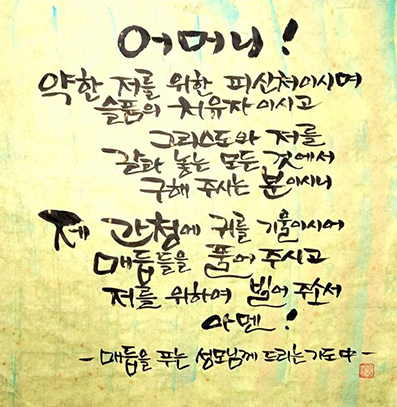 어머니!
약한 저를 위한 피신처이시며
슬픔의 치유자이시고
그리스도와 저를
갈라 놓는 모든 것에서
구해 주시는 분이시니
제 간청에 귀를 기울이시어
매듭들을 풀어 주시고
저를 위하여 빌어 주소서
아멘!
- 매듭을 푸는 성모님께 드리는 기도 中 -